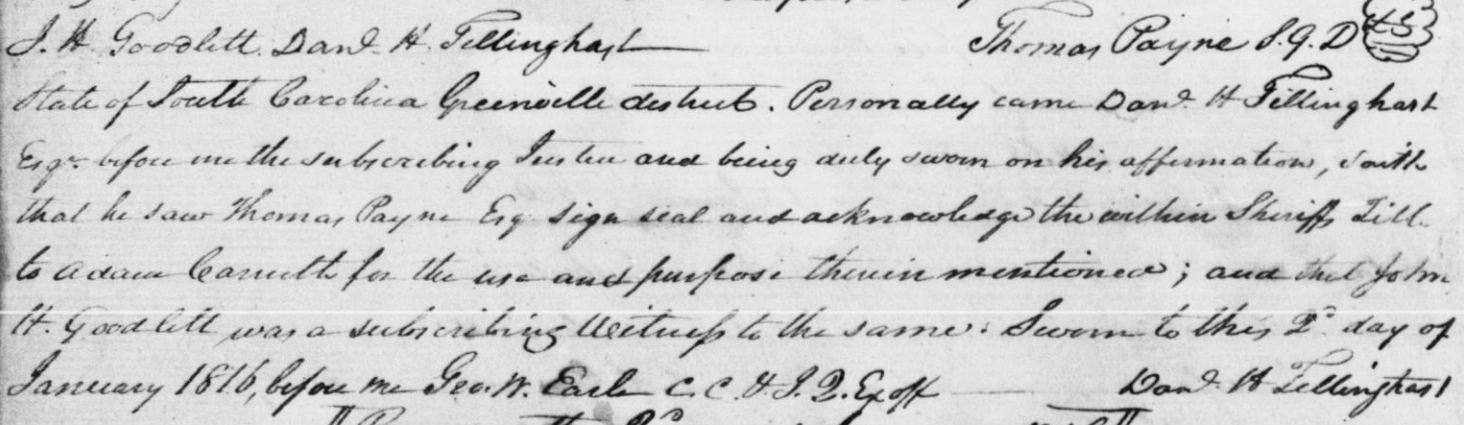 J. H. Goodlett. Danl. H. Tillinghast Thomas Payne S.G.D LS
State of South Carolina Greenville district. Personally came Danl. H Tillinghast
Esqr. before me the subscribing Justice and being duly sworn on his affirmation, saith
that he saw Thomas Payne Esq sign seal and acknowledge the within Sheriffs Title
to Adam Carruth for the use and purpose therein mentioned; and that John
H. Goodlett was a subscribing Witness to the same. Sworn to this 2d. day of
January 1816, before me Geo. W. Earle C. C. & J. Q. Ex off Danl. H Tillinghast